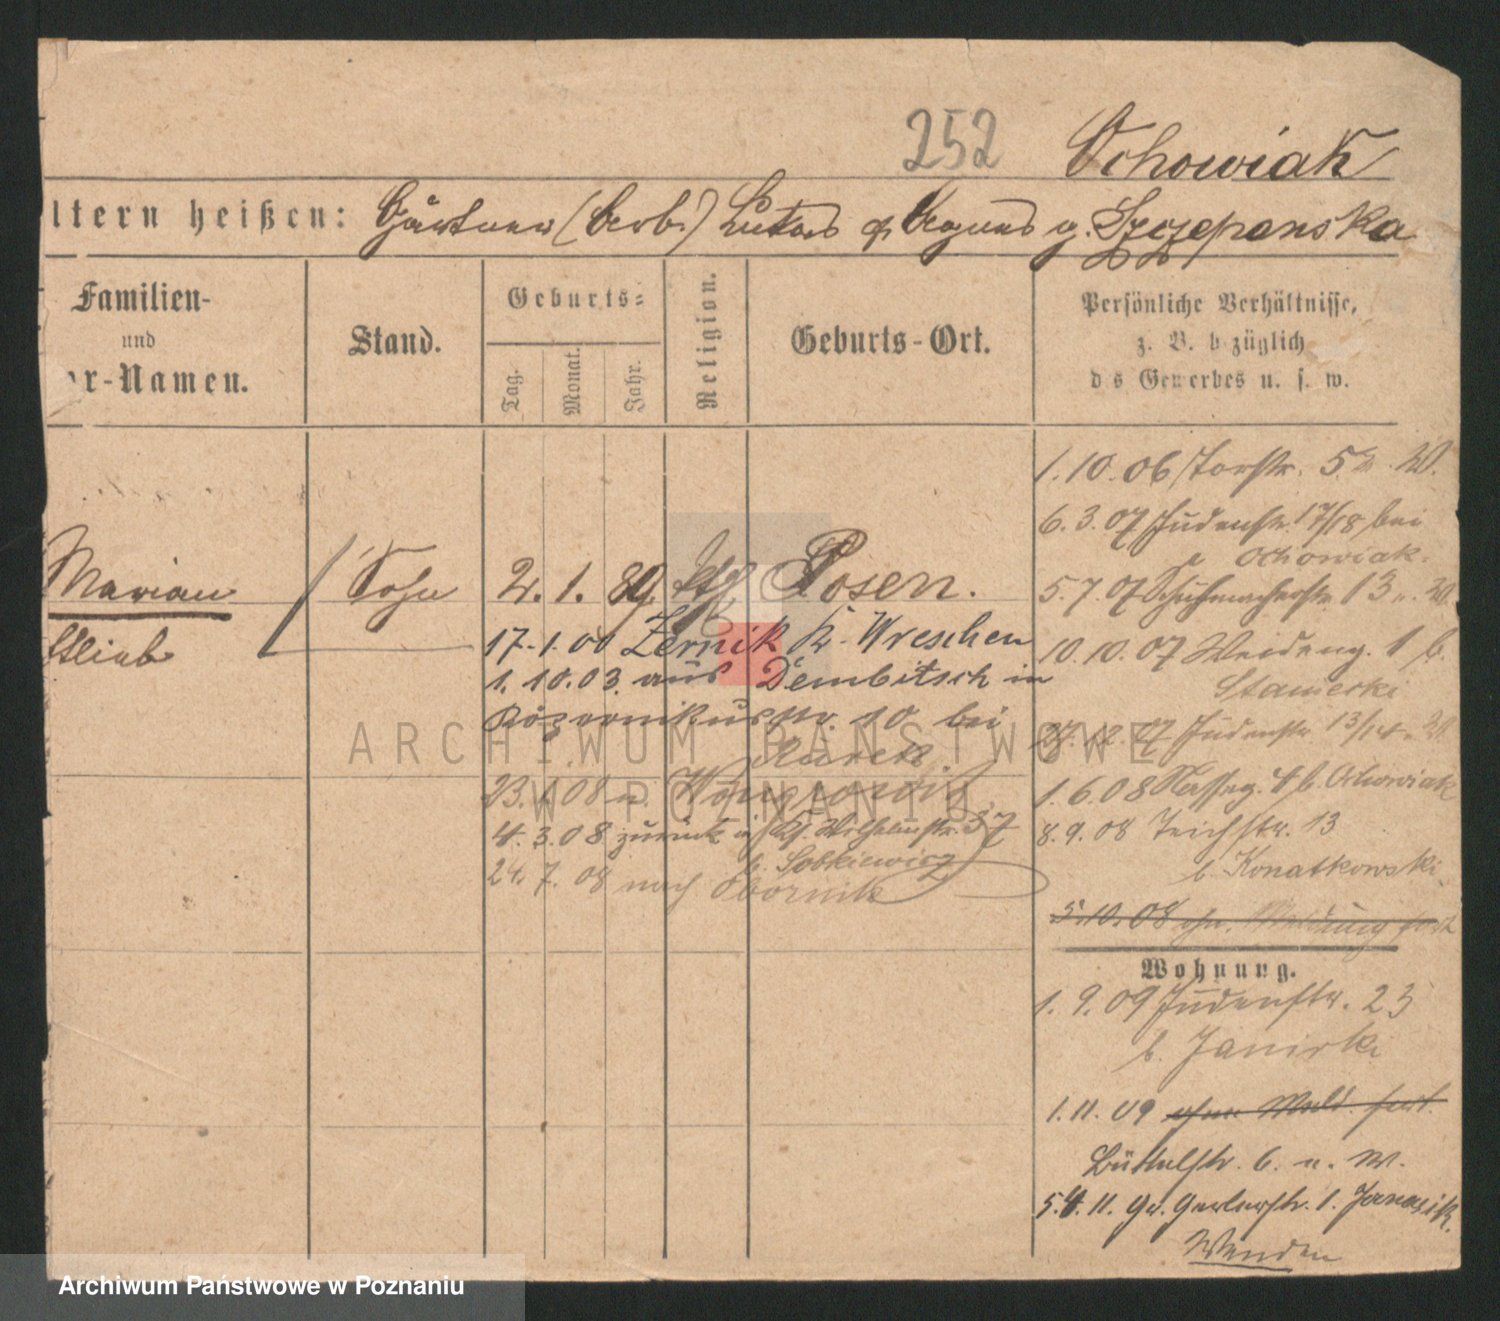 252 Ochowiak
ltern heißen: Gärtner (Arb.) Lukas & Agnes g. Szczepanska
Familien-
und
or-Namen.
Stand.
Geburts-
Tag.
Monat.
Jahr.
Religion.
Geburts-Ort.
Persönliche Verhältnisse,
z. B. bezüglich
des Gewerbes u. s. w.
Marian
Sohn
2. 1. 89. kth. Posen.
17. 1. 00 Zernik K. Wreschen
1. 10. 03. aus Dembitsch in
10 bei
23. 1. 08 n. Wongrowitz
4. 3. 08 zurück Wilhelmstr. 37
b. Sobkiewicz
24. 7. 08 nach Obornik
1. 10. 06 Torstr. 5 n. W.
6. 3. 07 Judenstr. 17/18 bei
Ochowiak.
5. 7. 07 Schuhmacherstr. 13 n. W.
10. 10. 07 Weideng. 1 b.
27. 12. 07 Judenstr. 13/14 n. W.
1. 6. 08 Nasseg. 4 b. Ochowiak
8. 9. 08 Teichstr. 13
b. Konatkowski
5. 10. 08 ohn. Meldung fort
Wohnung.
1. 9. 09 Judenstr. 23
b.
1. 11. 09 ohne Meld. fort.
Büttelstr. 6. n. W.
5. 4. 11. Gr. Gerberstr. 1.
Wenden
ARCHIWUM PAŃSTWOWE
W POZNANIU
Archiwum Państwowe w Poznaniu